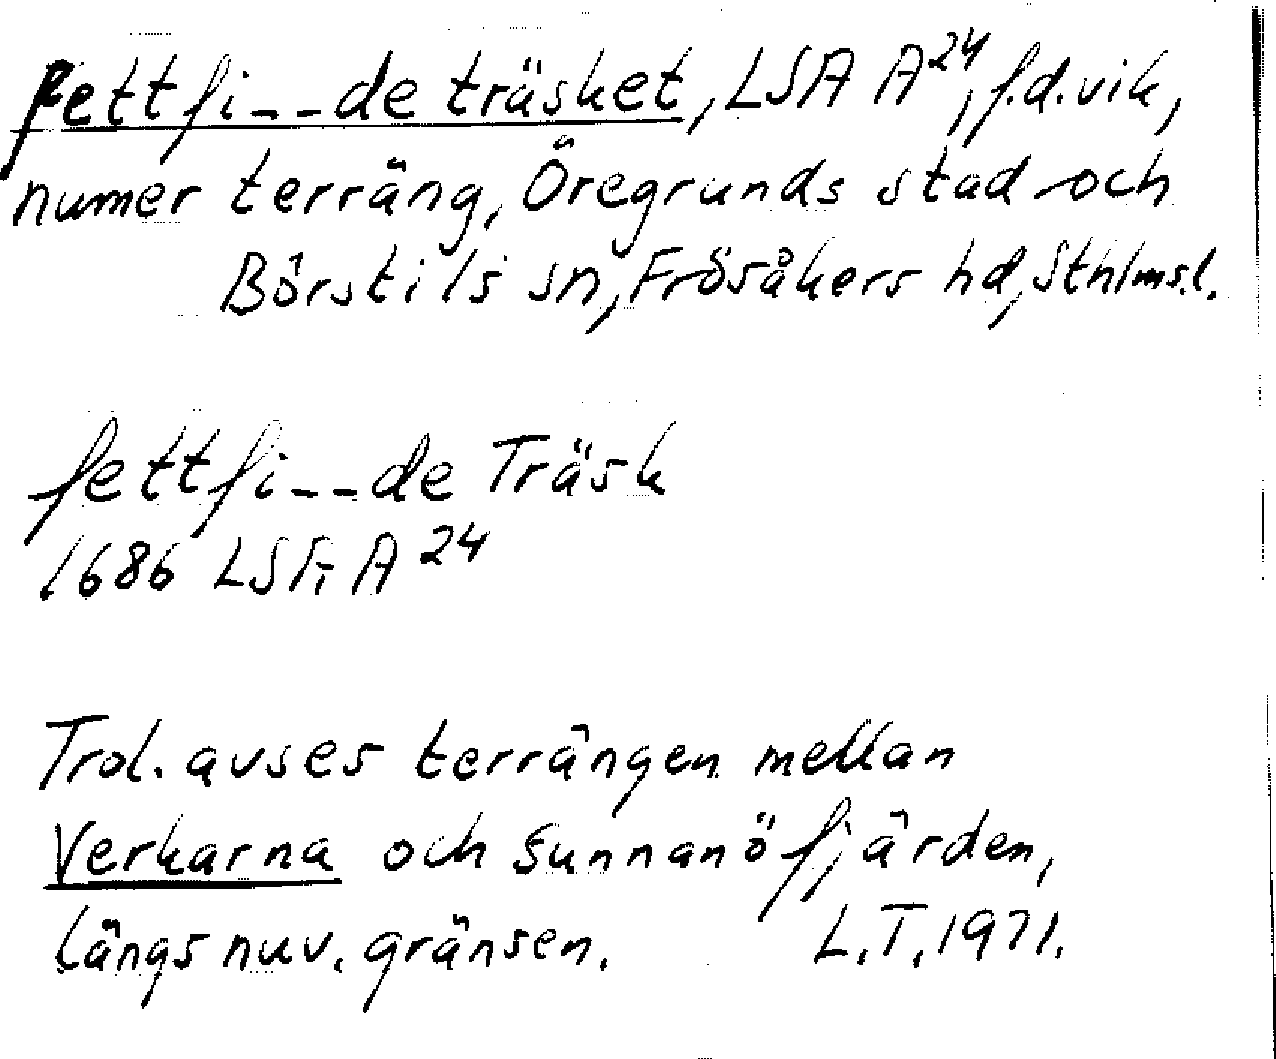 Fettfi--de träsket, LSA A24, f.d. vik,
numer terräng, Öregrunds stad och
Börstils sn, Frösåkers hd, Sthlms l.
fettfi--de Träsk
1686 LSA A 24
Trol. avses terrängen mellan
Verkarna och Sunnanöfjärden,
längs nuv. gränsen. L.T. 1971.